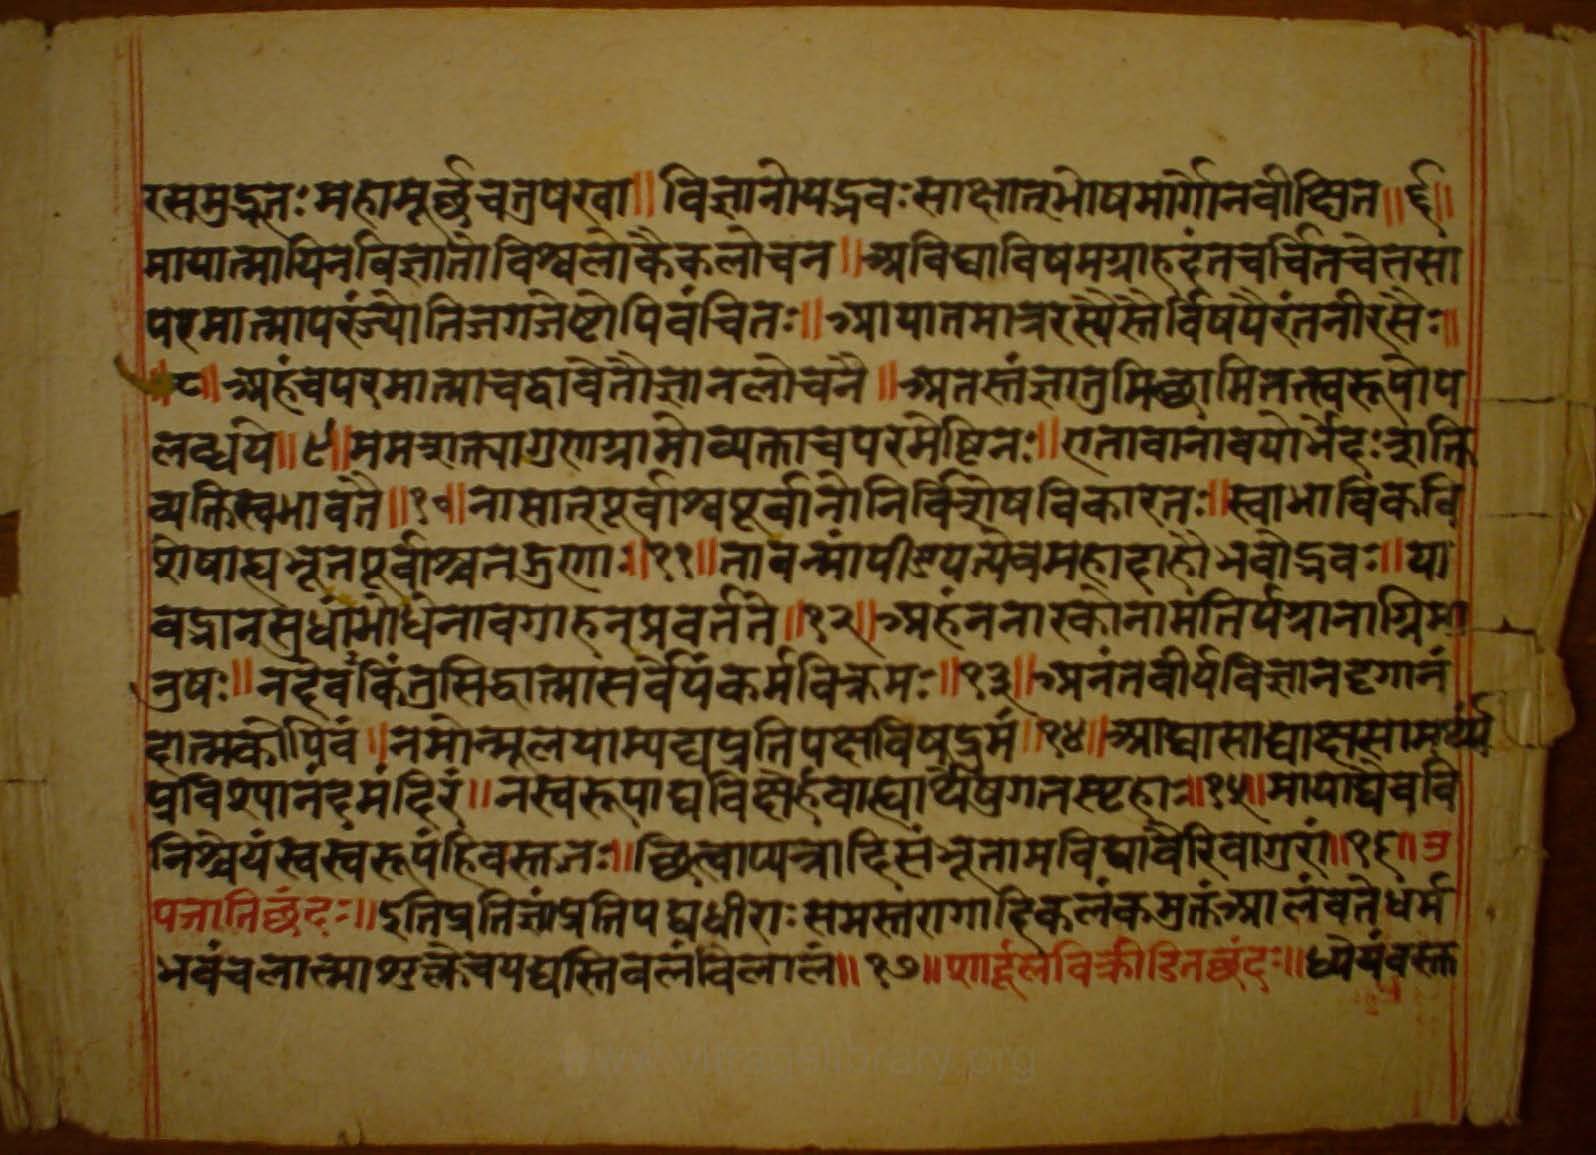 रसमुद्भूतः महामूर्च्छुचत्रषरवा॥ विज्ञानोयद्भवः साक्षातभोषमार्गोनवीक्षित॥६॥
मायात्मायिनविज्ञातोविश्वलोकैकलोचन॥ अविद्याविषमग्राहदंतचर्चितचेतसां
परमात्मापरंज्योतिजगजेष्टोपिवंचितः॥ आपातमात्ररस्यैस्तैर्विषयैरंतनीरसैः॥
॥८॥ अहंचपरमात्माचद्वावेतौज्ञानलोचनै॥ अतस्तंज्ञातुमिच्छामितत्स्वरूपोप
लब्धये॥९॥ममशक्त्यागुणग्रामोव्यक्ताचपरमेष्टिनः॥एतावानावयोर्भेदःशक्ति
व्यक्तिस्वभावते॥१०॥नासात्पूर्वाश्चपूर्वानोनिर्विशेषविकारतः॥स्वाभाविकवि
शेषाह्यभूतपूर्वाश्चतद्गुणाः॥११॥तावन्मांपीडयत्येवमहादाहोभवोद्भवः॥या
वद्ज्ञानसुधांभोधिनावगाहनप्रवर्तते॥१२॥अहंननारकोनामंतिर्पग्नानाग्निमा
नुषः॥नदेवंकिंतुसिद्धात्मासर्वेयंकर्मविक्रमः॥१३॥अनंतवीर्यविज्ञानदृगानं
दात्मकोपिवं॥नमोन्मूलयाम्यद्यप्रतिपक्षविषद्रुमं॥१४॥आद्यासाद्याक्षसामर्थ्यं
प्रविश्यानंदमंदिरं॥नस्वरूपाद्यविक्षोर्हवाह्यार्थेषुगतस्पृहात्र॥१५॥मायाद्यैवचवि
निश्चेयंस्वस्वंरूपंहिवस्तजः॥छित्वाप्यत्रादिसंभूतामविद्यावैरिवागुरां॥१६॥उ
पजातिछंदः॥इतिप्रतिज्ञांप्रतिपद्यधीराःसमस्तरागादिकलंकमुक्तंआलंवतेधर्म
भवंचलात्माशुक्लंचयद्यस्तिवलंविलालं॥१७॥शार्दूलविक्रीडितछंदः॥ध्येयंवस्क्त
www.vitragslibrary.org